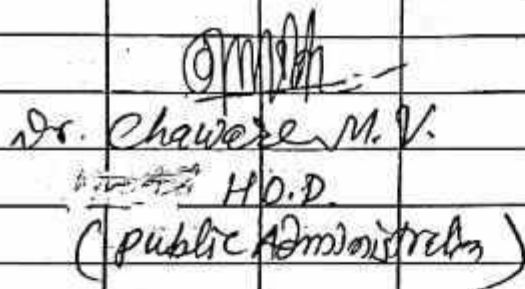 Dr. Chaware M. V.
H.O.D.
(Public Administration)